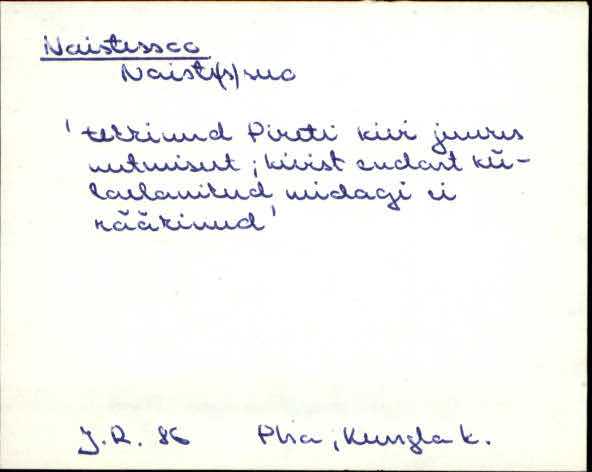 Naistessoo
Naist(s)suo
' tekkinud Pireti kivi juures
nutmisest; kivist endast kü-
laelanikud midagi ei
rääkinud'
J.R. 86 Pha; Kungla k.